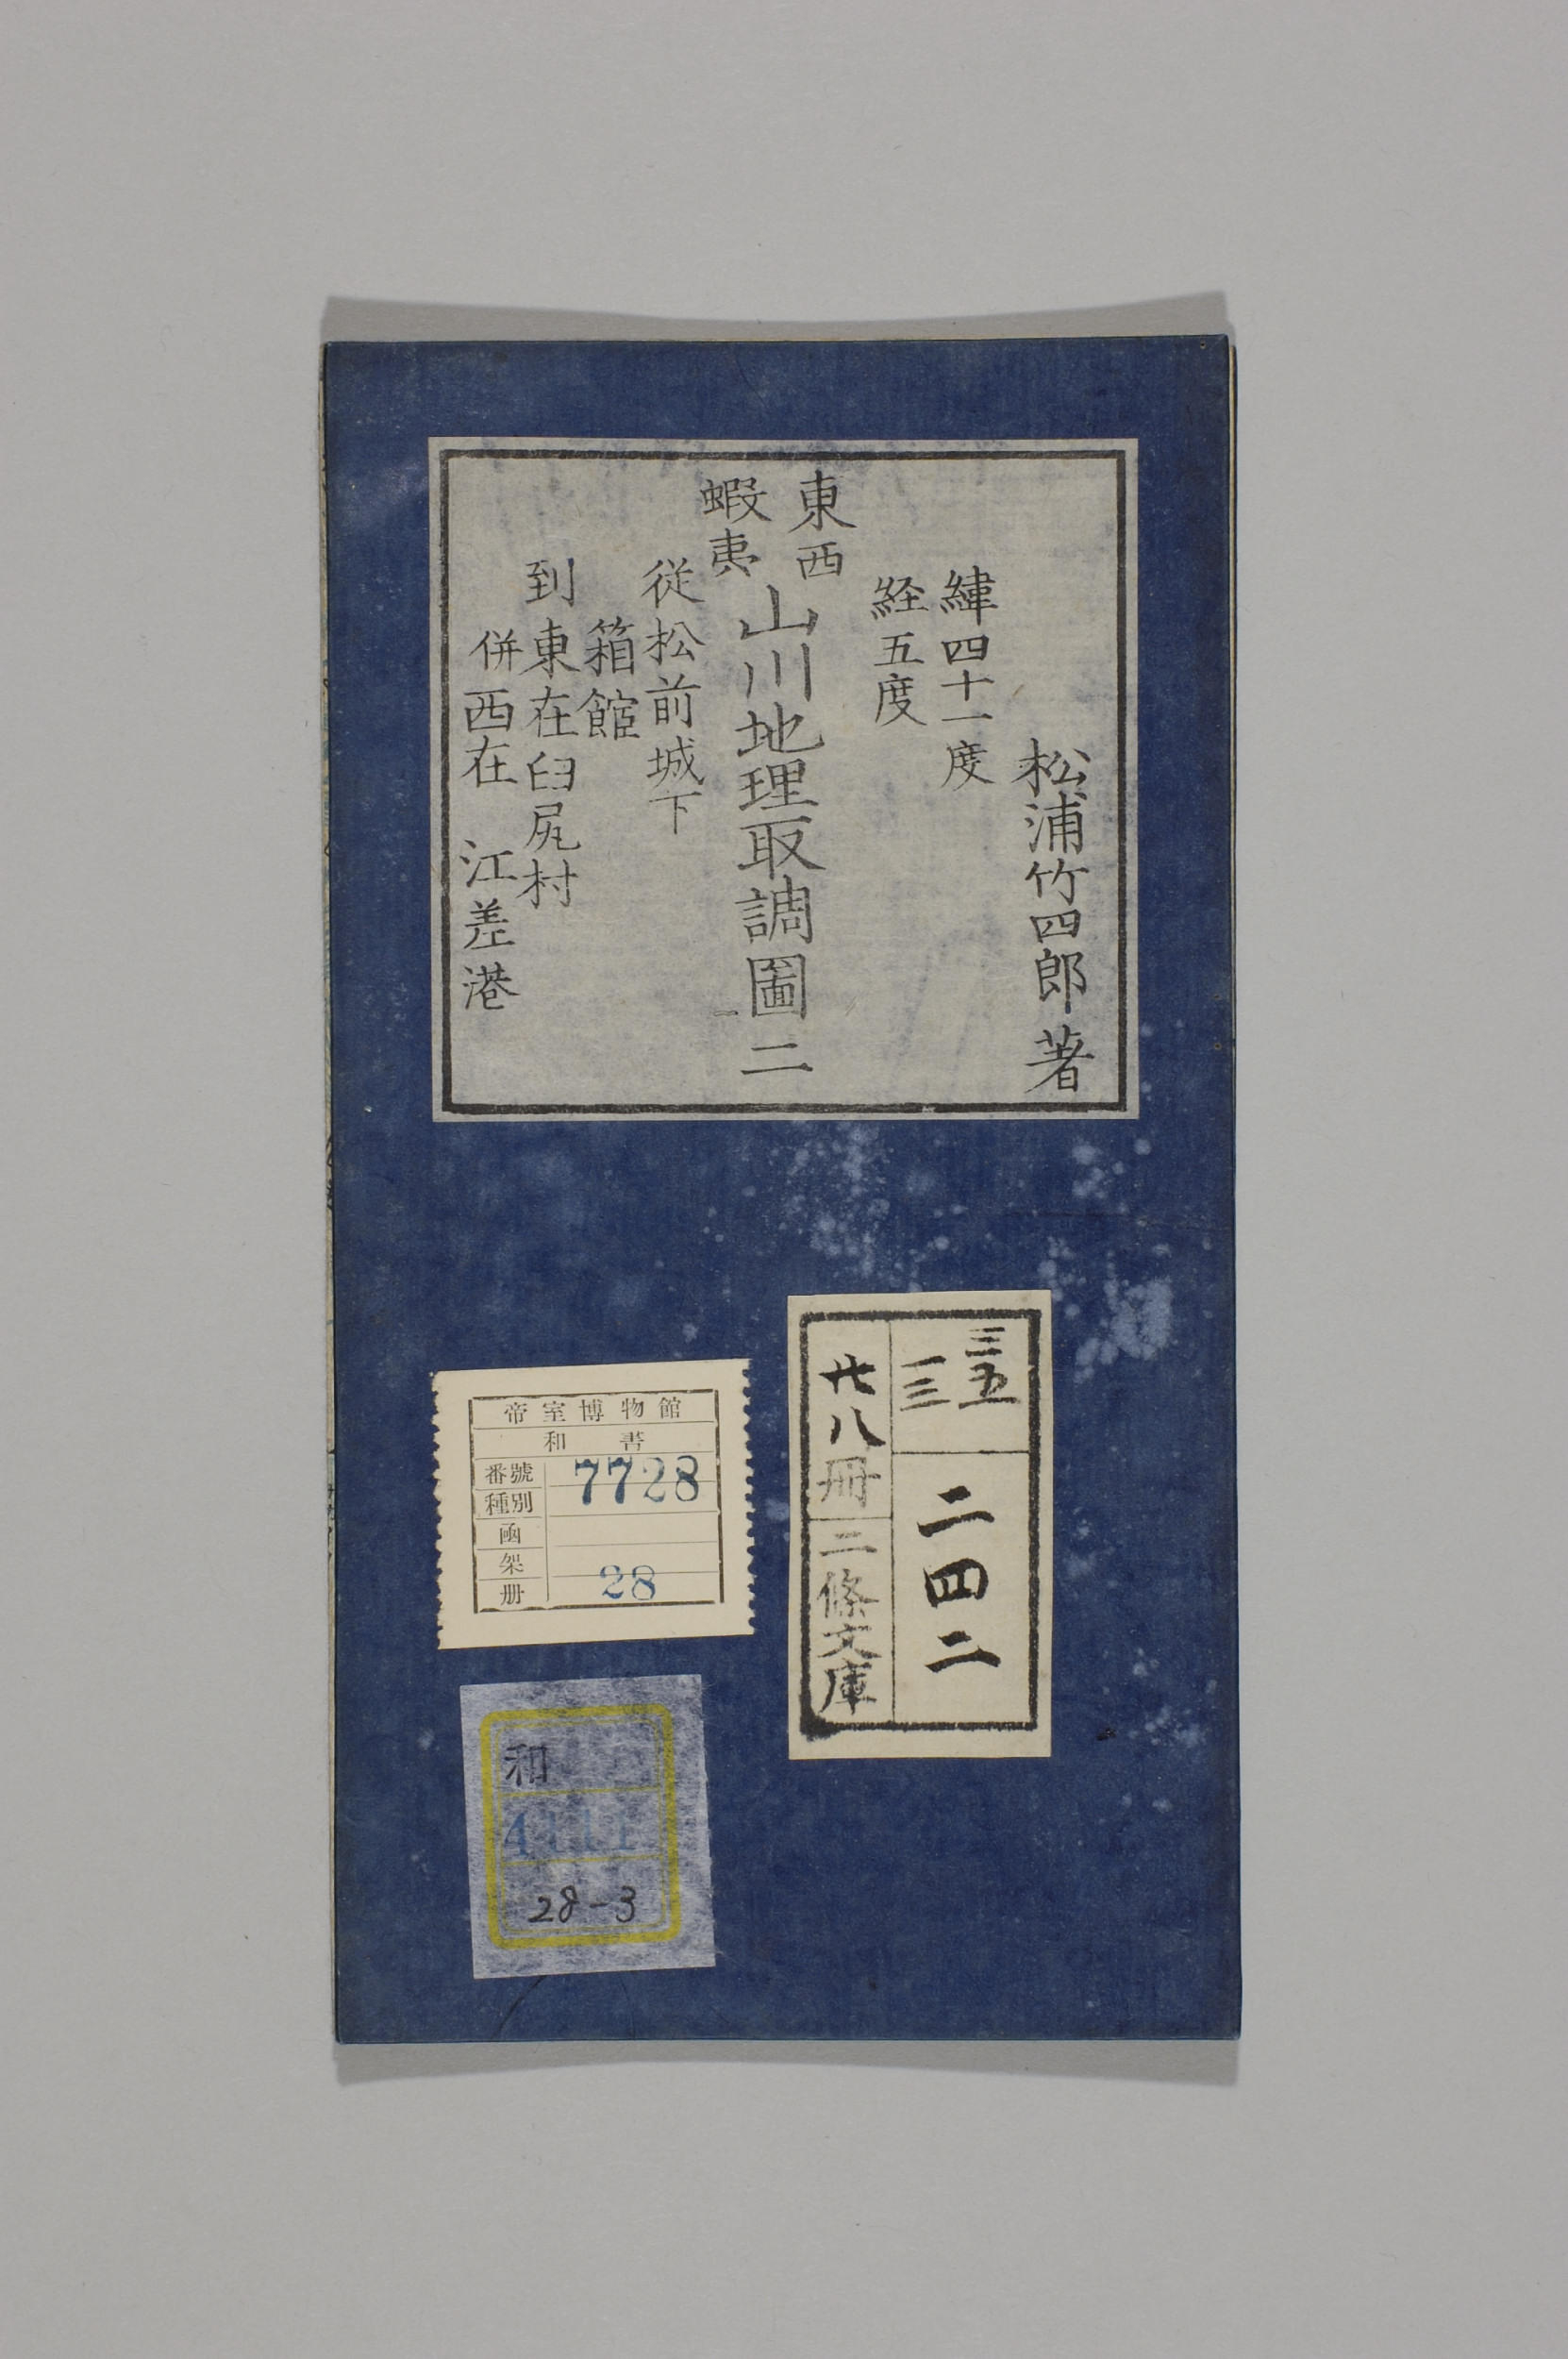 松浦竹四郎著
緯四十一度
経五度
東西
蝦夷
山川地理取調圖二
従松前城下
箱館
到東在臼尻村
併西在 江差港
三五
二四二
廿八冊
二條文庫
帝室博物館
和書
番號 7728
種別
函
架
册 28
和
28-3